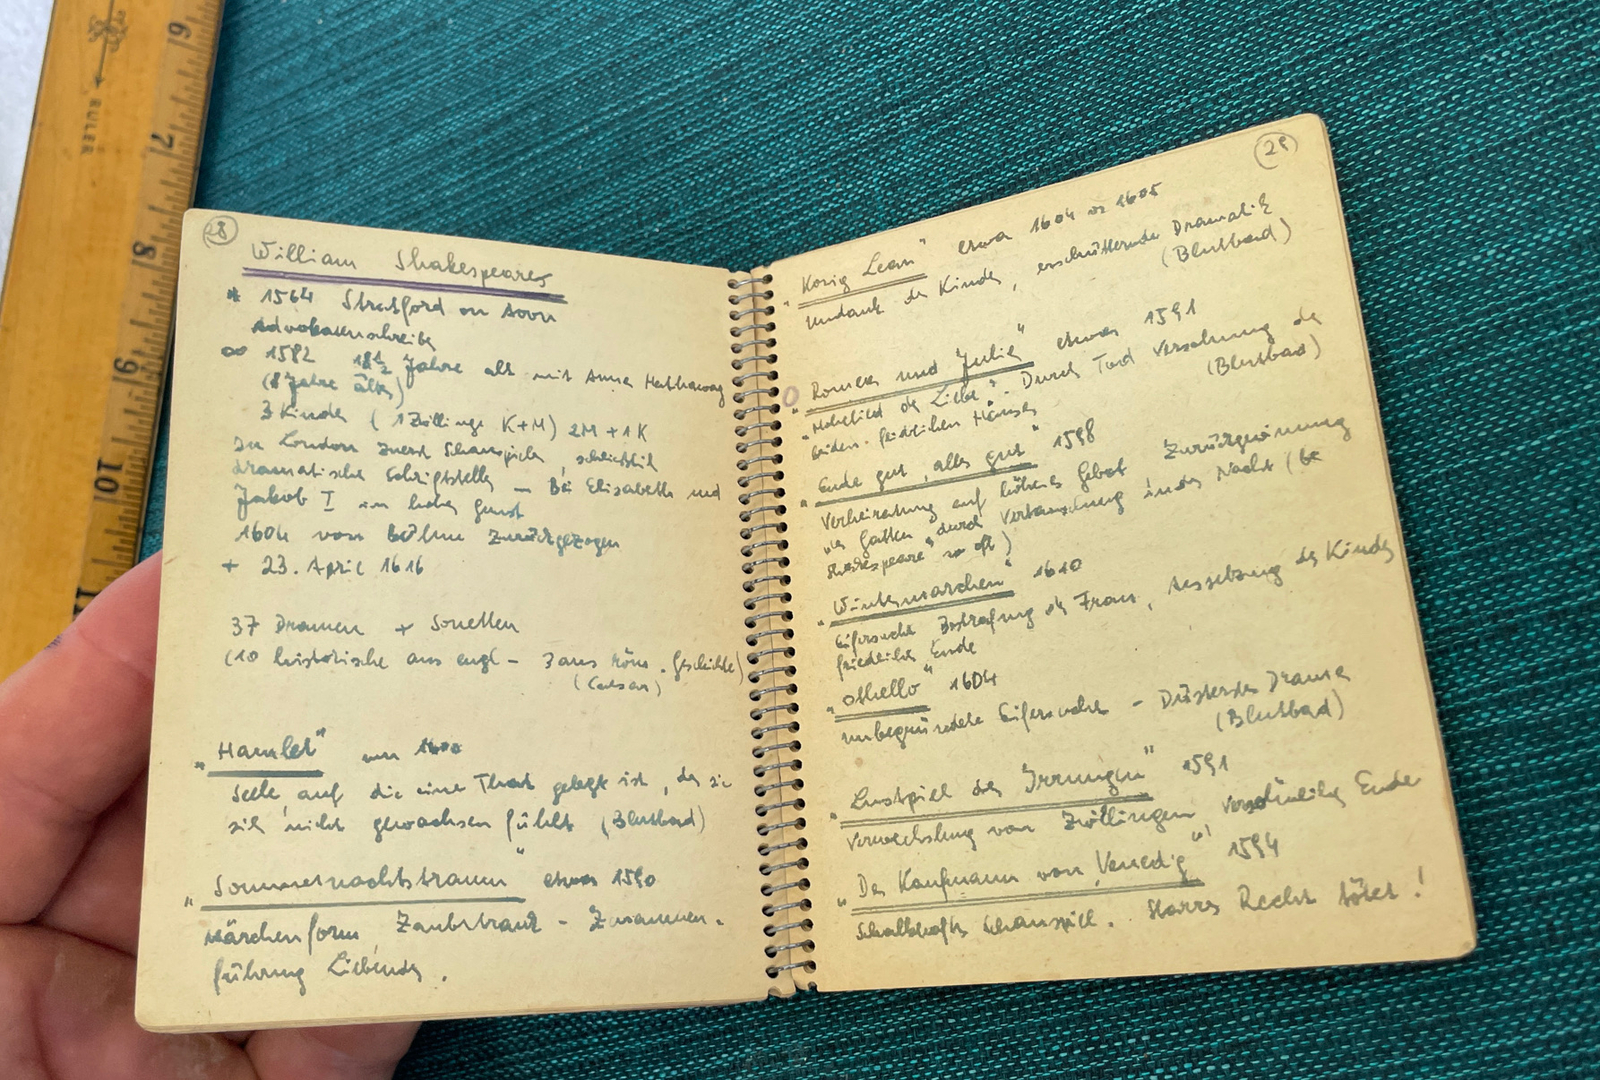 28
William Shakespeares
* 1564 Stratford on Avon
Advokatenschreiber
∞ 1582 18½ Jahre alt mit Anna Hathaway
(8 Jahre älter)
3 Kinder (1 Zwillinge K+M) 2M + 1K
In London zuerst Schauspieler, schließlich
dramatischer Schriftsteller – Bei Elisabeth und
Jakob I in hoher Gunst
1604 von Bühne zurückgezogen
+ 23. April 1616
37 Dramen + Sonetten
(10 historische aus engl – 3 aus röm. Geschichte)
(Caesar)
„Hamlet" um 1600
Seele, auf die eine That gelegt ist, der sie
sich nicht gewachsen fühlt (Blutbad)
„Sommernachtstraum" etwa 1590
Märchenform, Zaubertrank – Zusammen-
führung Liebender.
29
„König Lear" etwa 1604 oz 1605
Undank der Kinder, erschütternde Dramatik
(Blutbad)
„Romeo und Julia" etwa 1591
„Hohelied der Liebe" Durch Tod Versöhnung der
beiden feindlichen Häuser (Blutbad)
„Ende gut, alles gut" 1598
Verheiratung auf höheres Gebot Zurückgewinnung
des Gatten durch Vertauschung in der Nacht (bei
Shakespeare so oft)
„Wintermärchen" 1610
Eifersucht Bestrafung der Frau, Aussetzung des Kindes
friedliches Ende
„Othello" 1604
unbegründete Eifersucht – Düsterstes Drama
(Blutbad)
„Lustspiel der Irrungen" 1591
Verwechslung von Zwillingen, versöhnliches Ende
„Der Kaufmann von Venedig" 1594
Schalkhaftes Schauspiel. Starres Recht tötet!
RULER
6
7
8
9
10
11